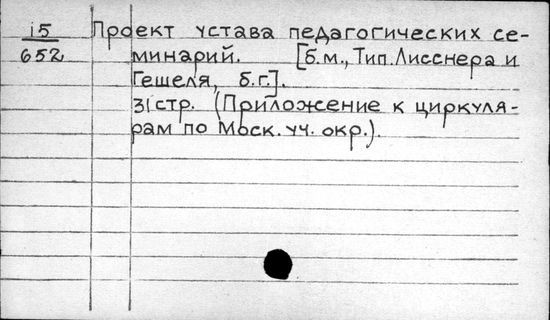 i5
652
Проект устава педагогических се-
минарий. [б.м., Тип. Лисснера и
Гешеля, б.г.].
31стр. (Приложение к циркуля-
рам по Моск. уч. окр.).